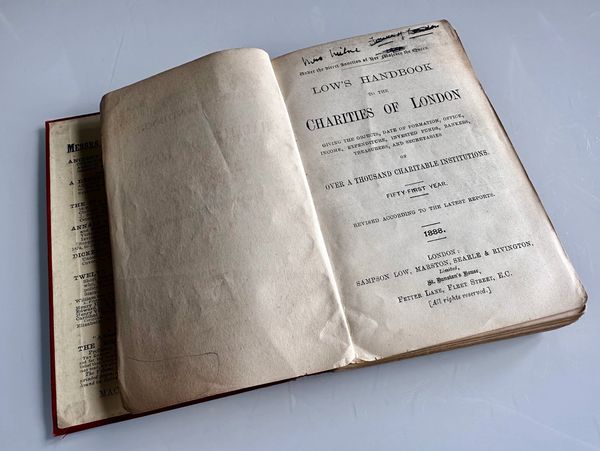 MESSRS
A
THE
ANNA
DICKE
TWELV
THE
MAC
Mrs Milne
Under the Direct Sanction of Her Majesty the Queen.
LOW'S HANDBOOK
TO THE
CHARITIES OF LONDON
GIVING THE OBJECTS, DATE OF FORMATION, OFFICE,
INCOME, EXPENDITURE, INVESTED FUNDS, BANKERS,
TREASURERS, AND SECRETARIES
OF
OVER A THOUSAND CHARITABLE INSTITUTIONS.
FIFTY-FIRST YEAR.
REVISED ACCORDING TO THE LATEST REPORTS.
1888.
LONDON:
SAMPSON LOW, MARSTON, SEARLE & RIVINGTON,
Limited,
St. Dunstan's House,
FETTER LANE, FLEET STREET, E.C.
[All rights reserved.]